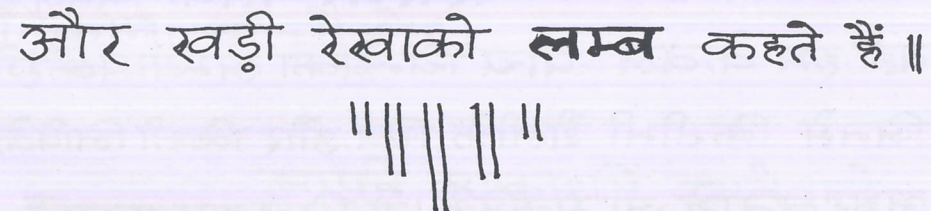 और खड़ी रेखाको लम्ब कहते हैं॥